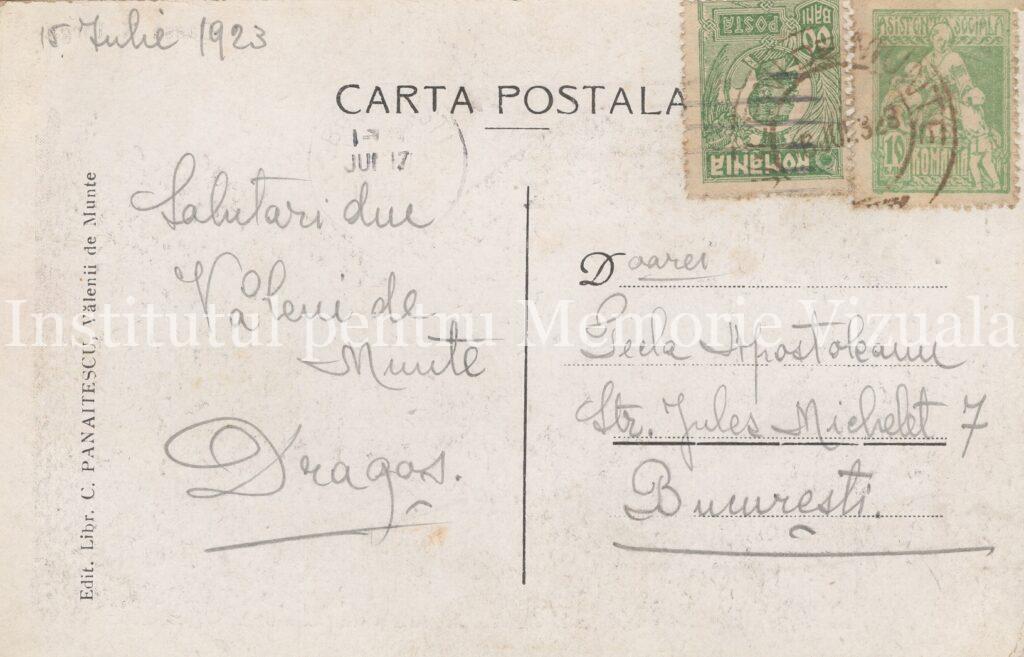 15 Iulie 1923
CARTA POSTALA
JUI 17
POSTA
60 BANI
ROMANIA
ASISTENTA SOCIALA
10
ROMANIA
Salutari din
Vălenii de
Munte
Dragoș.
Doarei
Apostoleanu
Str. Jules Michelet 7
București.
Edit. Libr. C. PANAITESCU, Vălenii de Munte
Institutul pentru Memorie Vizuala